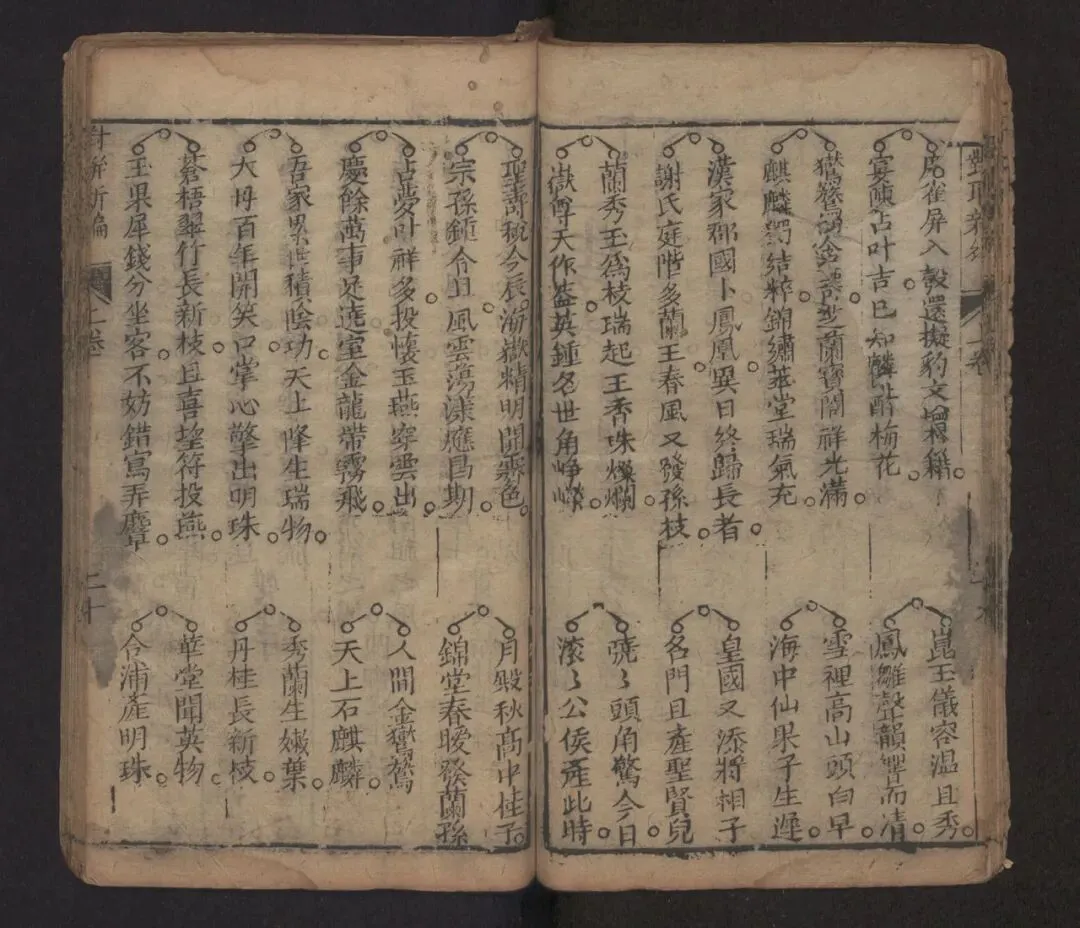 雀屏入彀還擬豹文增稱
占叶吉已知麟梅花
芝蘭寶閣祥光滿
麒麟結粹錦繡華堂瑞氣充
漢家郡國卜鳳凰異日終歸長者
謝氏庭階多蘭玉春風又發孫枝
蘭秀玉爲枝瑞起王香珠燦爛
嶽尊天作蓋英鍾名世角崢嶸
崑玉儀容温且秀
鳳雛聲韻響而清
雪裡高山頭白早
海中仙果子生遲
皇國又添將相子
名門且產聖賢兒
號〻頭角驚今日
滚〻公侯產此時
聖壽祝今辰海嶽精明開霽色
宗孫鍾令旦風雲蕩漾應昌期
占夢叶祥多投懷玉燕穿雲出
慶餘萬事足遶室金龍帶霧飛
吾家累世積陰功天上降生瑞物
大母百年開笑口掌心擎出明珠
蒼梧翠竹長新枝且喜望符投燕
玉果犀錢分坐客不妨錯寫弄麞
月殿秋高中桂子
錦堂春暖發蘭孫
人間金鸑鷟
天上石麒麟
秀蘭生嫩葉
丹桂長新枝
華堂聞英物
合浦產明珠
對新編
二卷
二十